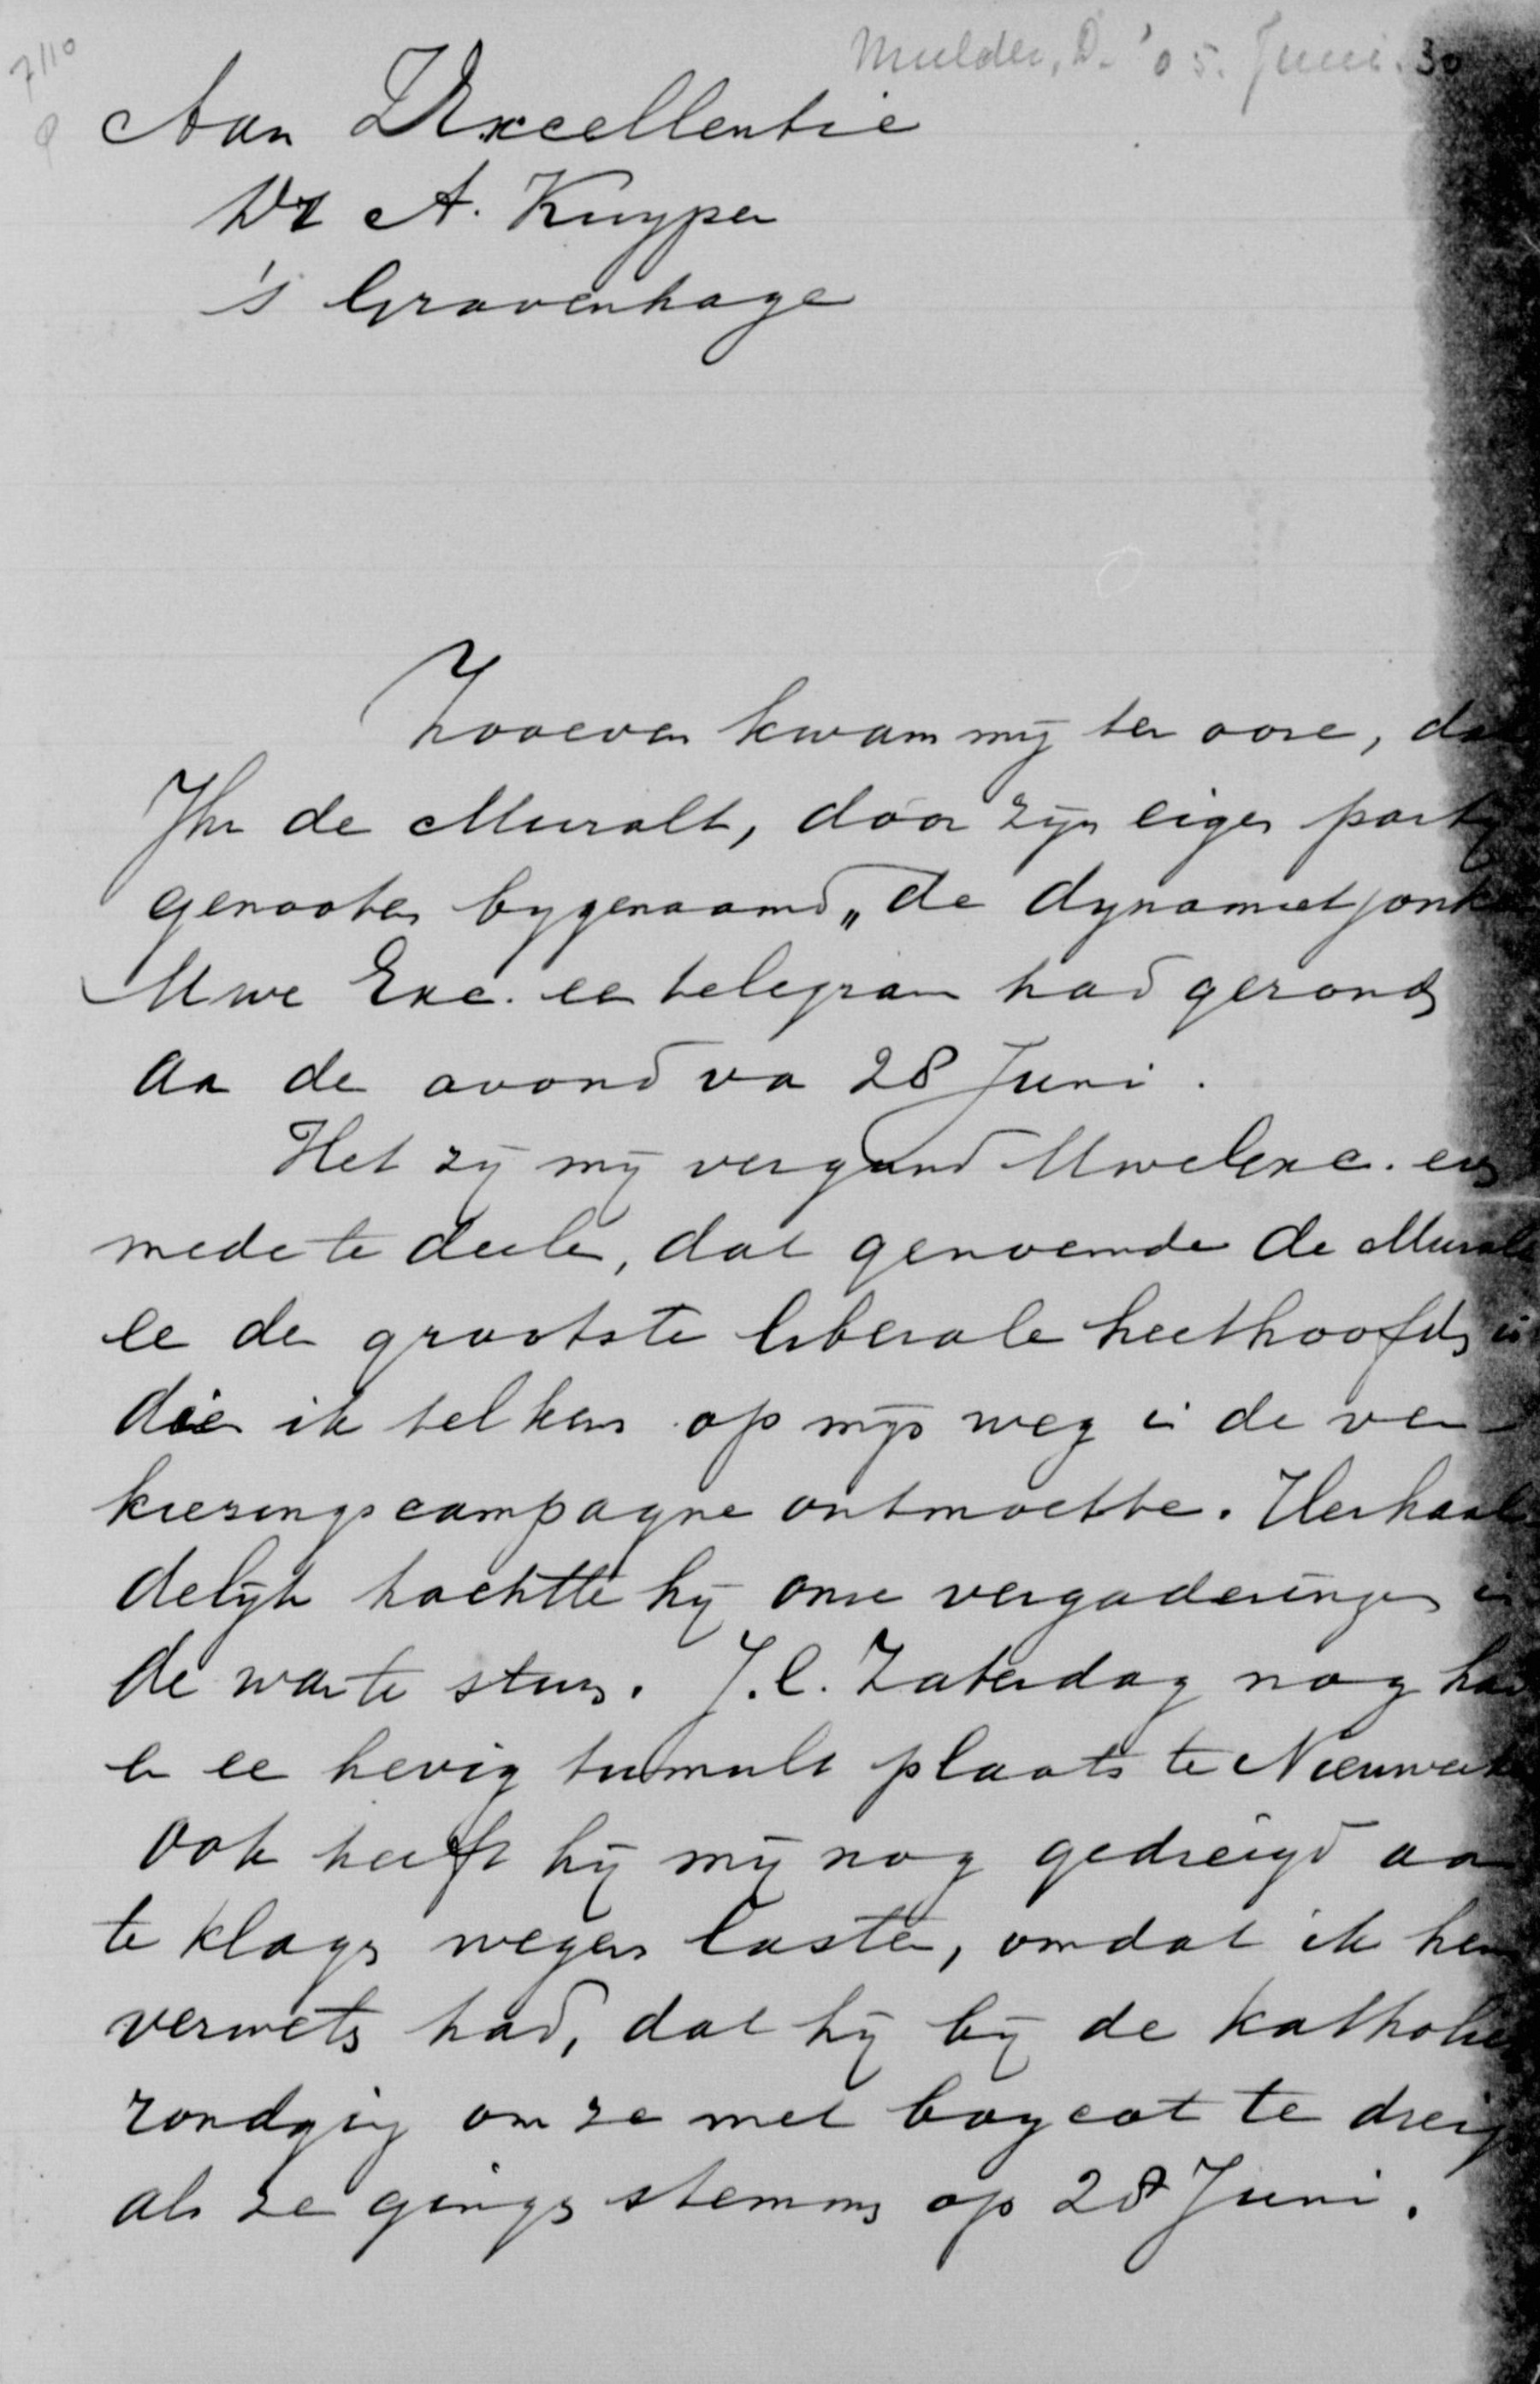 7110
Mulder, D. '05. Juni. 30
Aan ZExcellentie
Dr A. Kuyper
's Gravenhage
Zooeven kwam mij ter oore, dat
Jhr de Muralt, door zijn eigen party
genooten bygenaamd „de dynamietjonker
Uwe Exc. een telegram had gezonden
aan de avond van 28 Juni.
Het zij mij vergund Uwe Exc. even
mede te deelen, dat genoemde de Muralt
een der grootste liberale heethoofden is
dien ik telkens op mijn weg in de ver-
kiezingscampagne ontmoette. Herhaal
delijk trachtte hij onze vergaderingen in
de war te sturen. J.l. Zaterdag nog had
er een hevig tumult plaats te Nieuwerk
Ook heeft hij mij nog gedreigd aan
te klagen wegens laster, omdat ik hem
verweten had, dat hij bij de Katholieken
rondging om ze met boycot te dreigen
als ze gingen stemmen op 28 Juni.